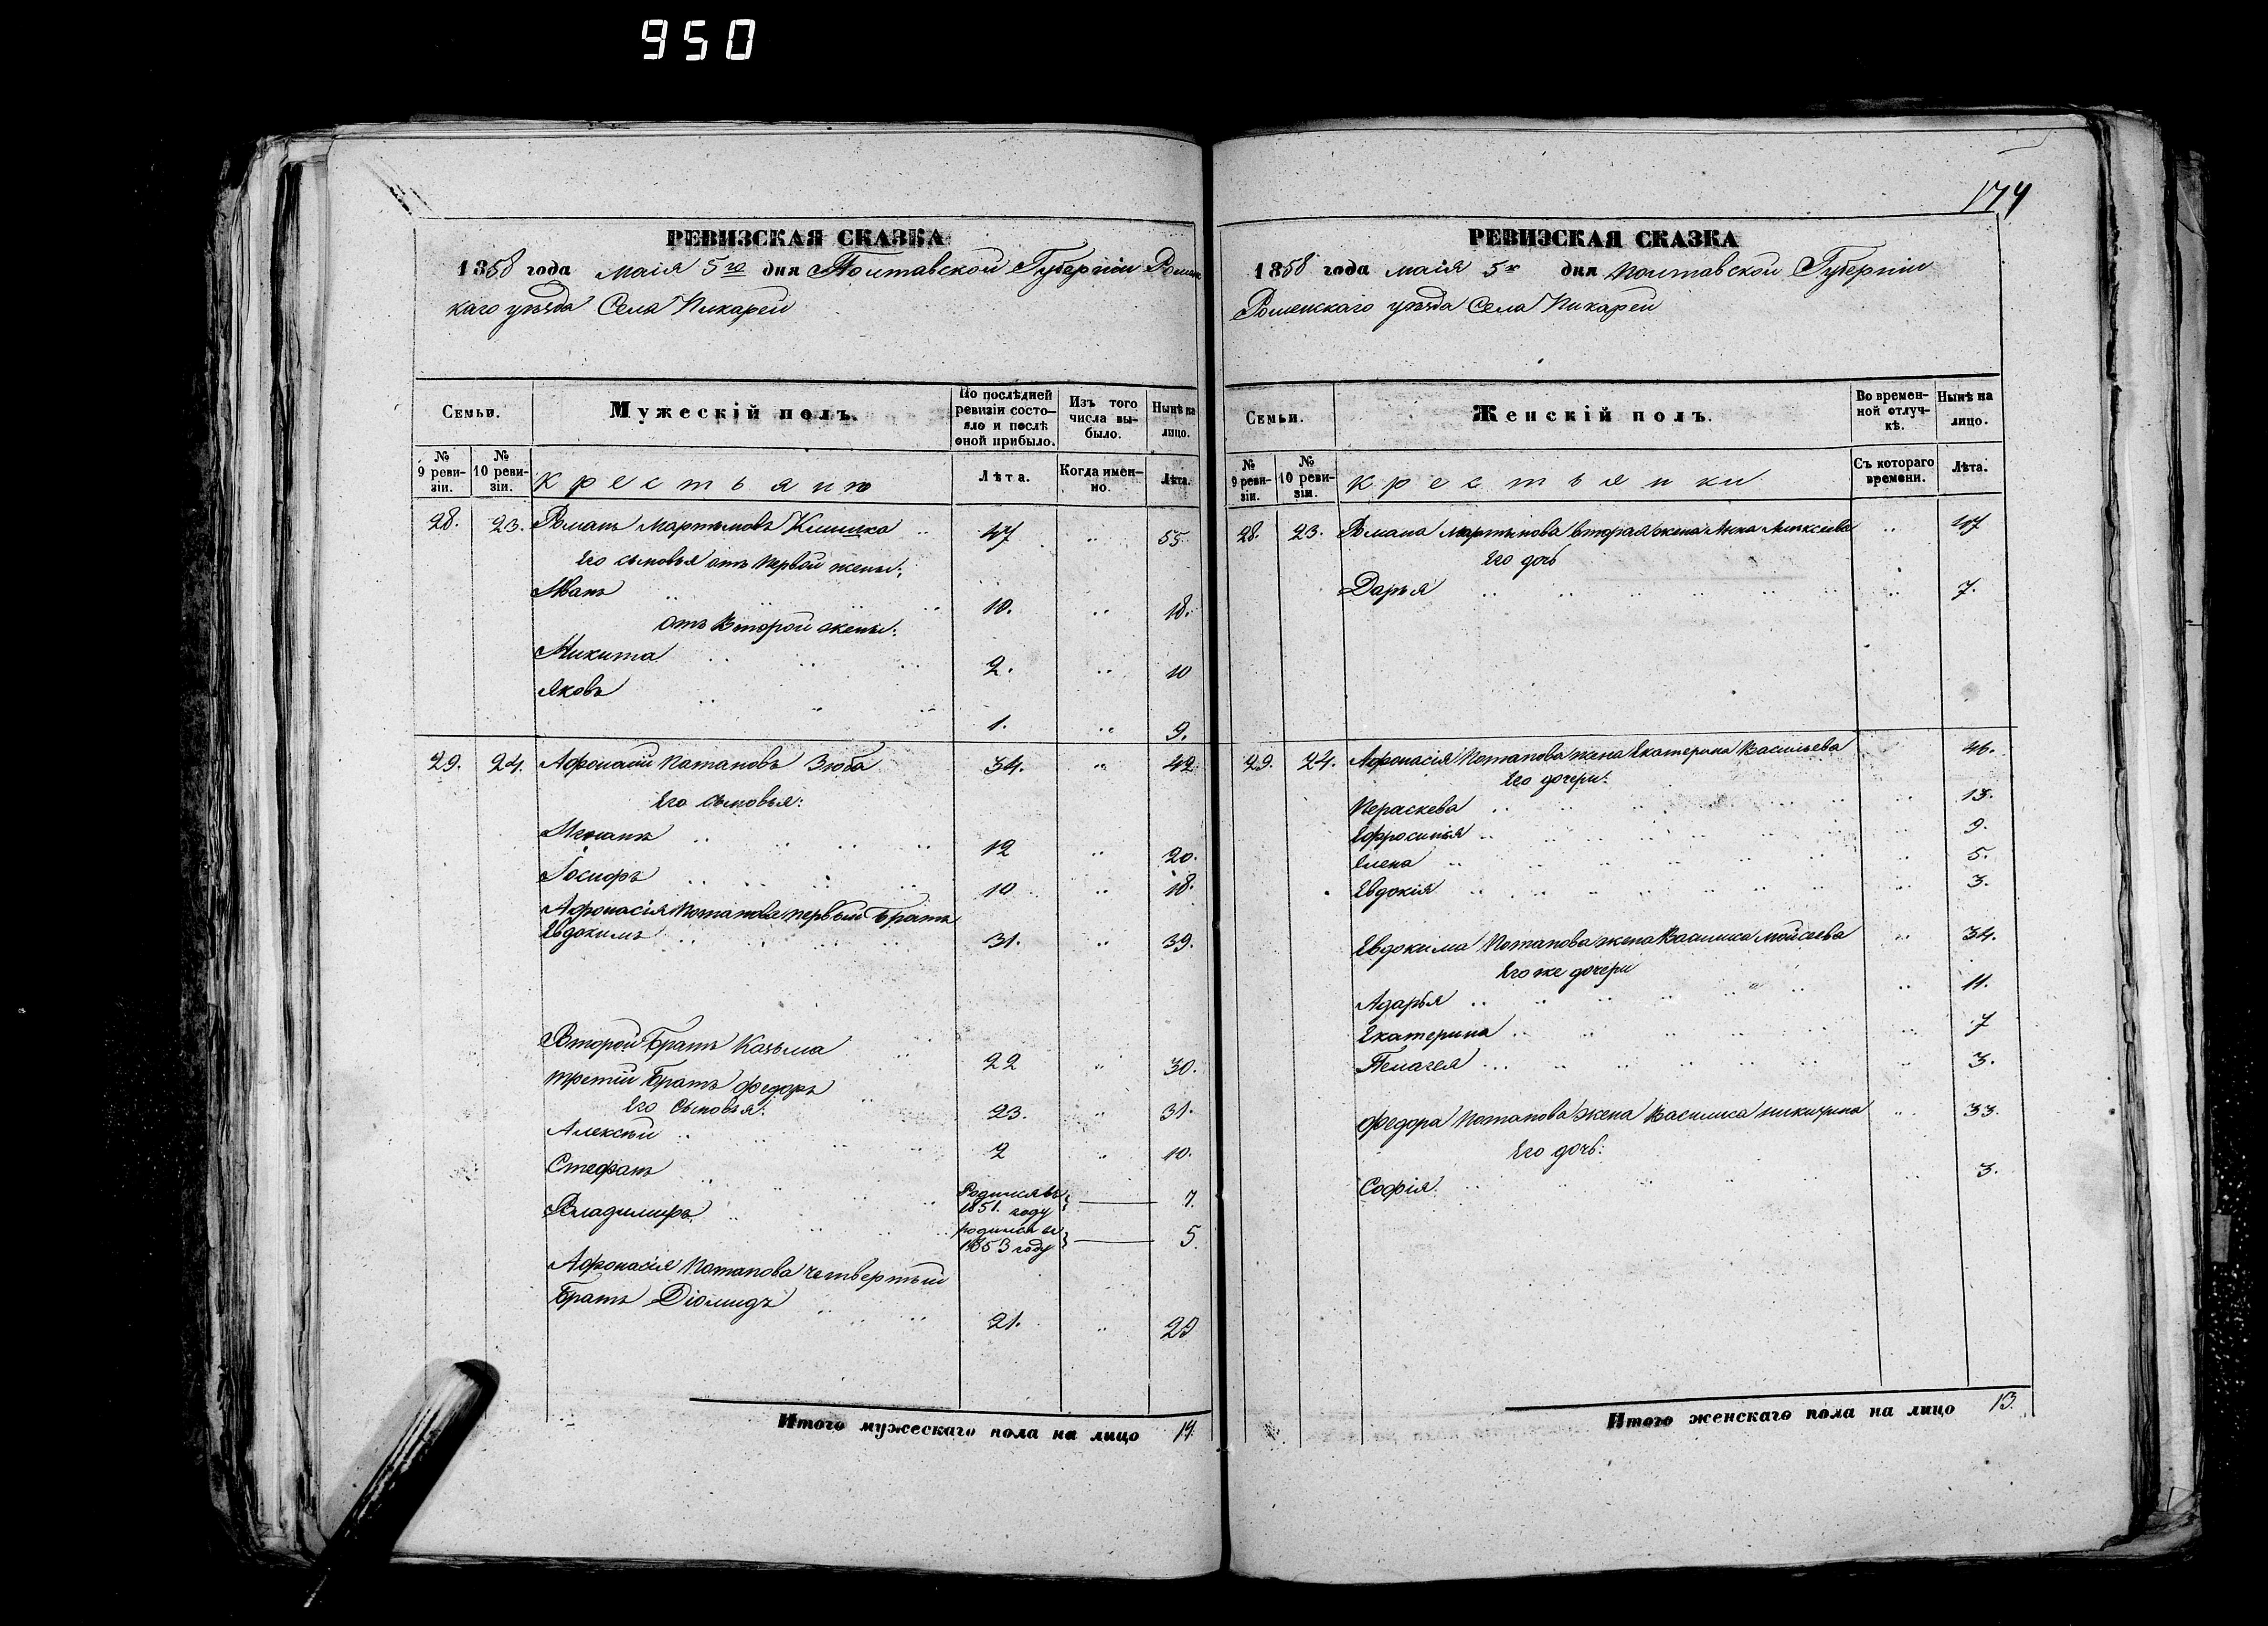 950
РЕВИЗСКАЯ СКАЗКА
1858 года Маія 5го дня Полтавской Губерніи Ромен
каго уѣзда Села Пикарей
Семьи.
Мужескій полъ.
По послѣдней ревизіи состояло и послѣ оной прибыло.
Изъ того числа выбыло.
Нынѣ на лицо.
№ 9 ревизіи.
№ 10 ревизіи.
Крестьяне
Лѣта.
Когда именно.
Лѣта.
28. 23. Романъ Мартыновъ Клишка 47 55
Его сыновья отъ первой жены:
Иванъ 10. 18.
отъ Второй жены:
Микита 2. 10
Яковъ 1. 9.
29. 24. Афонасій Потаповъ Зюба 34. 42
Его сыновья:
12 20.
Іосифъ 10 18.
Афонасія Потапова первый братъ
Евдокимъ 31. 39.
Второй братъ Козьма 22 30.
третій братъ Федоръ 23. 31.
Его Сыновья:
Алексѣй 2 10.
Стефанъ Родился въ 1851. году 7.
Владимиръ родился въ 1853 году 5.
Афонасія Потапова четвертый
братъ Діомидъ 21. 29
Итого мужескаго пола на лицо 14.
174
РЕВИЗСКАЯ СКАЗКА
1858 года маія 5го дня Полтавской Губерніи
Роменскаго уѣзда Села Пикарей
Семьи.
Женскій полъ.
Во временной отлучкѣ.
Нынѣ на лицо.
№ 9 ревизіи.
№ 10 ревизіи.
Крестьянки
Съ котораго времени.
Лѣта.
28. 23. Романа Мартынова вторая жена Анна Алексеева 47
Его дочь
Дарья 7.
29. 24. Афонасія Потапова жена Екатерина Васильева 46.
Его дочери:
Пераскева 13.
Ефросинія 9.
Елена 5.
Евдокія 3.
Евдокима Потапова жена Василиса Мойсеева 34.
Его же дочери
Адарья 11.
Екатерина 7
Пелагея 3.
Федора Потапова жена Василиса Никитина 33.
Его дочь:
Софія 3.
Итого женскаго пола на лицо 13.